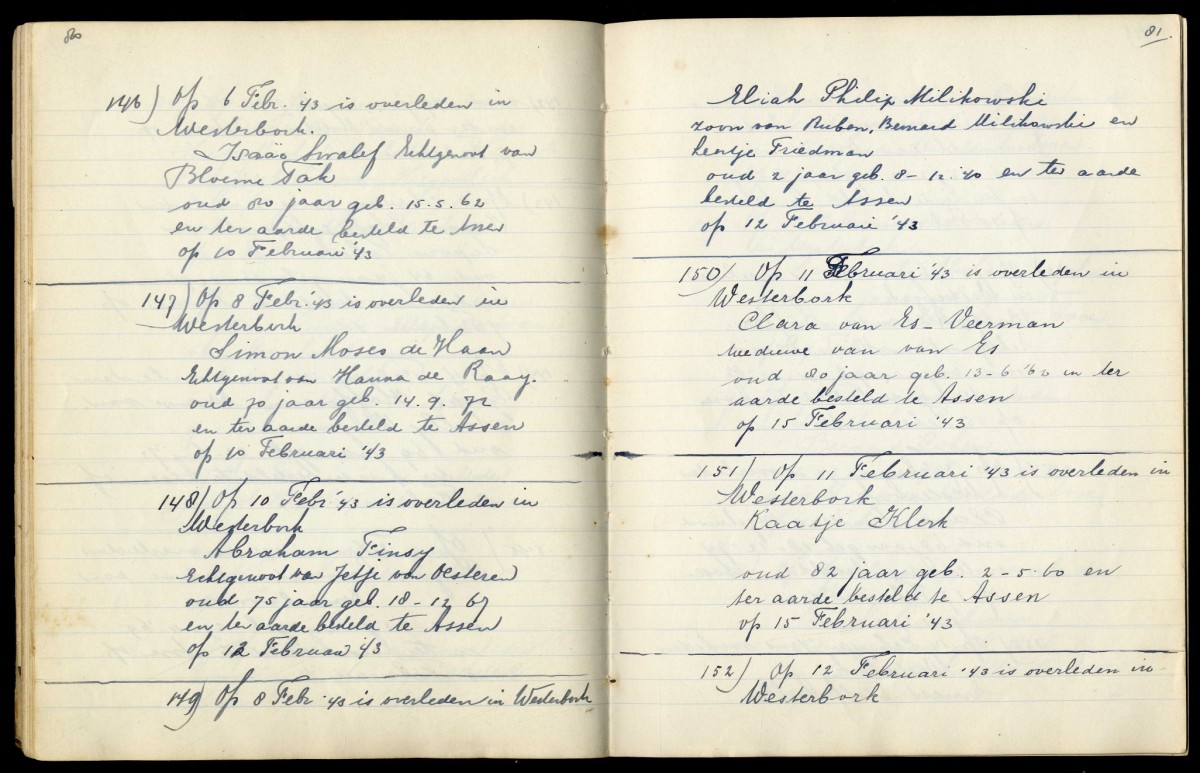 80
146) Op 6 Febr. '43 is overleden in
Westerbork.
Isaäc Swalef Echtgenoot van
Bloeme Tak
oud 80 jaar geb. 15.5.62
en ter aarde besteld te Assen
op 10 Februari '43
147) Op 8 Febr. '43 is overleden in
Westerbork
Simon Moses de Haan
Echtgenoot van Hanna de Raay.
oud 70 jaar geb. 14.9.72
en ter aarde besteld te Assen
op 10 Februari '43
148) Op 10 Febr. '43 is overleden in
Westerbork
Abraham Finsy
Echtgenoot van Jetje van Oesteren
oud 75 jaar geb. 18-12 67
en ter aarde besteld te Assen
op 12 Februari '43
149) Op 8 Febr. '43 is overleden in Westerbork
81.
Eliah Philip Milikowski
zoon van Ruben, Bernard Milikowski en
Friedman
oud 2 jaar geb. 8-12.40 en ter aarde
besteld te Assen
op 12 Februari '43
150) Op 11 Februari '43 is overleden in
Westerbork
Clara van Es-Veerman
weduwe van van Es
oud 80 jaar geb. 13-6 '62 in ter
aarde besteld te Assen
op 15 Februari '43
151) Op 11 Februari '43 is overleden in
Westerbork
Kaatje Klerk
oud 82 jaar geb. 2-5.60 en
ter aarde besteld te Assen
op 15 Februari '43
152) Op 12 Februari '43 is overleden in
Westerbork